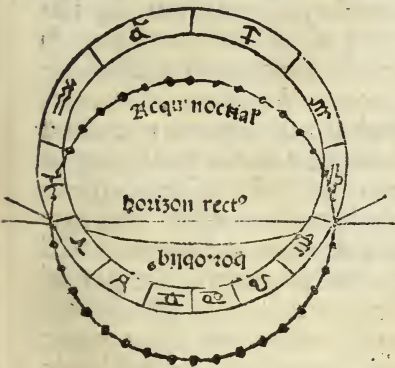 Aequinoctial'
horizon rectꝰ
hor. obliqꝰ